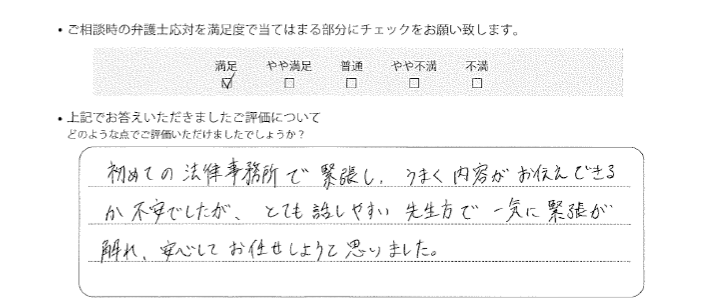 • ご相談時の弁護士応対を満足度で当てはまる部分にチェックをお願い致します。
満足 やや満足 普通 やや不満 不満
☑ ☐ ☐ ☐ ☐
• 上記でお答えいただきましたご評価について
どのような点でご評価いただけましたでしょうか？
初めての法律事務所で緊張し、うまく内容がお伝えできる
か不安でしたが、とても話しやすい先生方で一気に緊張が
解れ、安心してお任せしようと思いました。